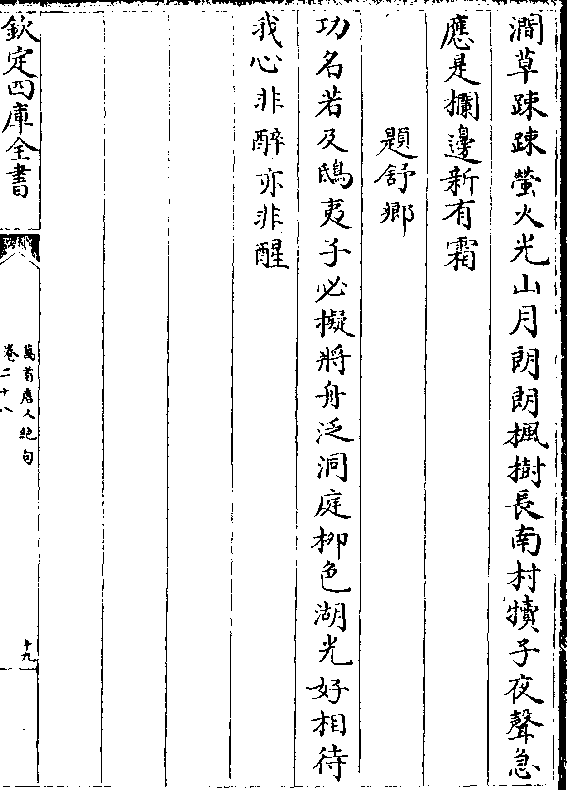 澗草踈踈螢火光山月朗朗楓樹長南村犢子夜聲急
應是攔邊新有霜
題舒鄉
功名若及鴟夷子必擬將舟泛洞庭柳色湖光好相待
我心非醉亦非醒
欽定四庫全書
萬首唐人絶句
卷二十八
十九